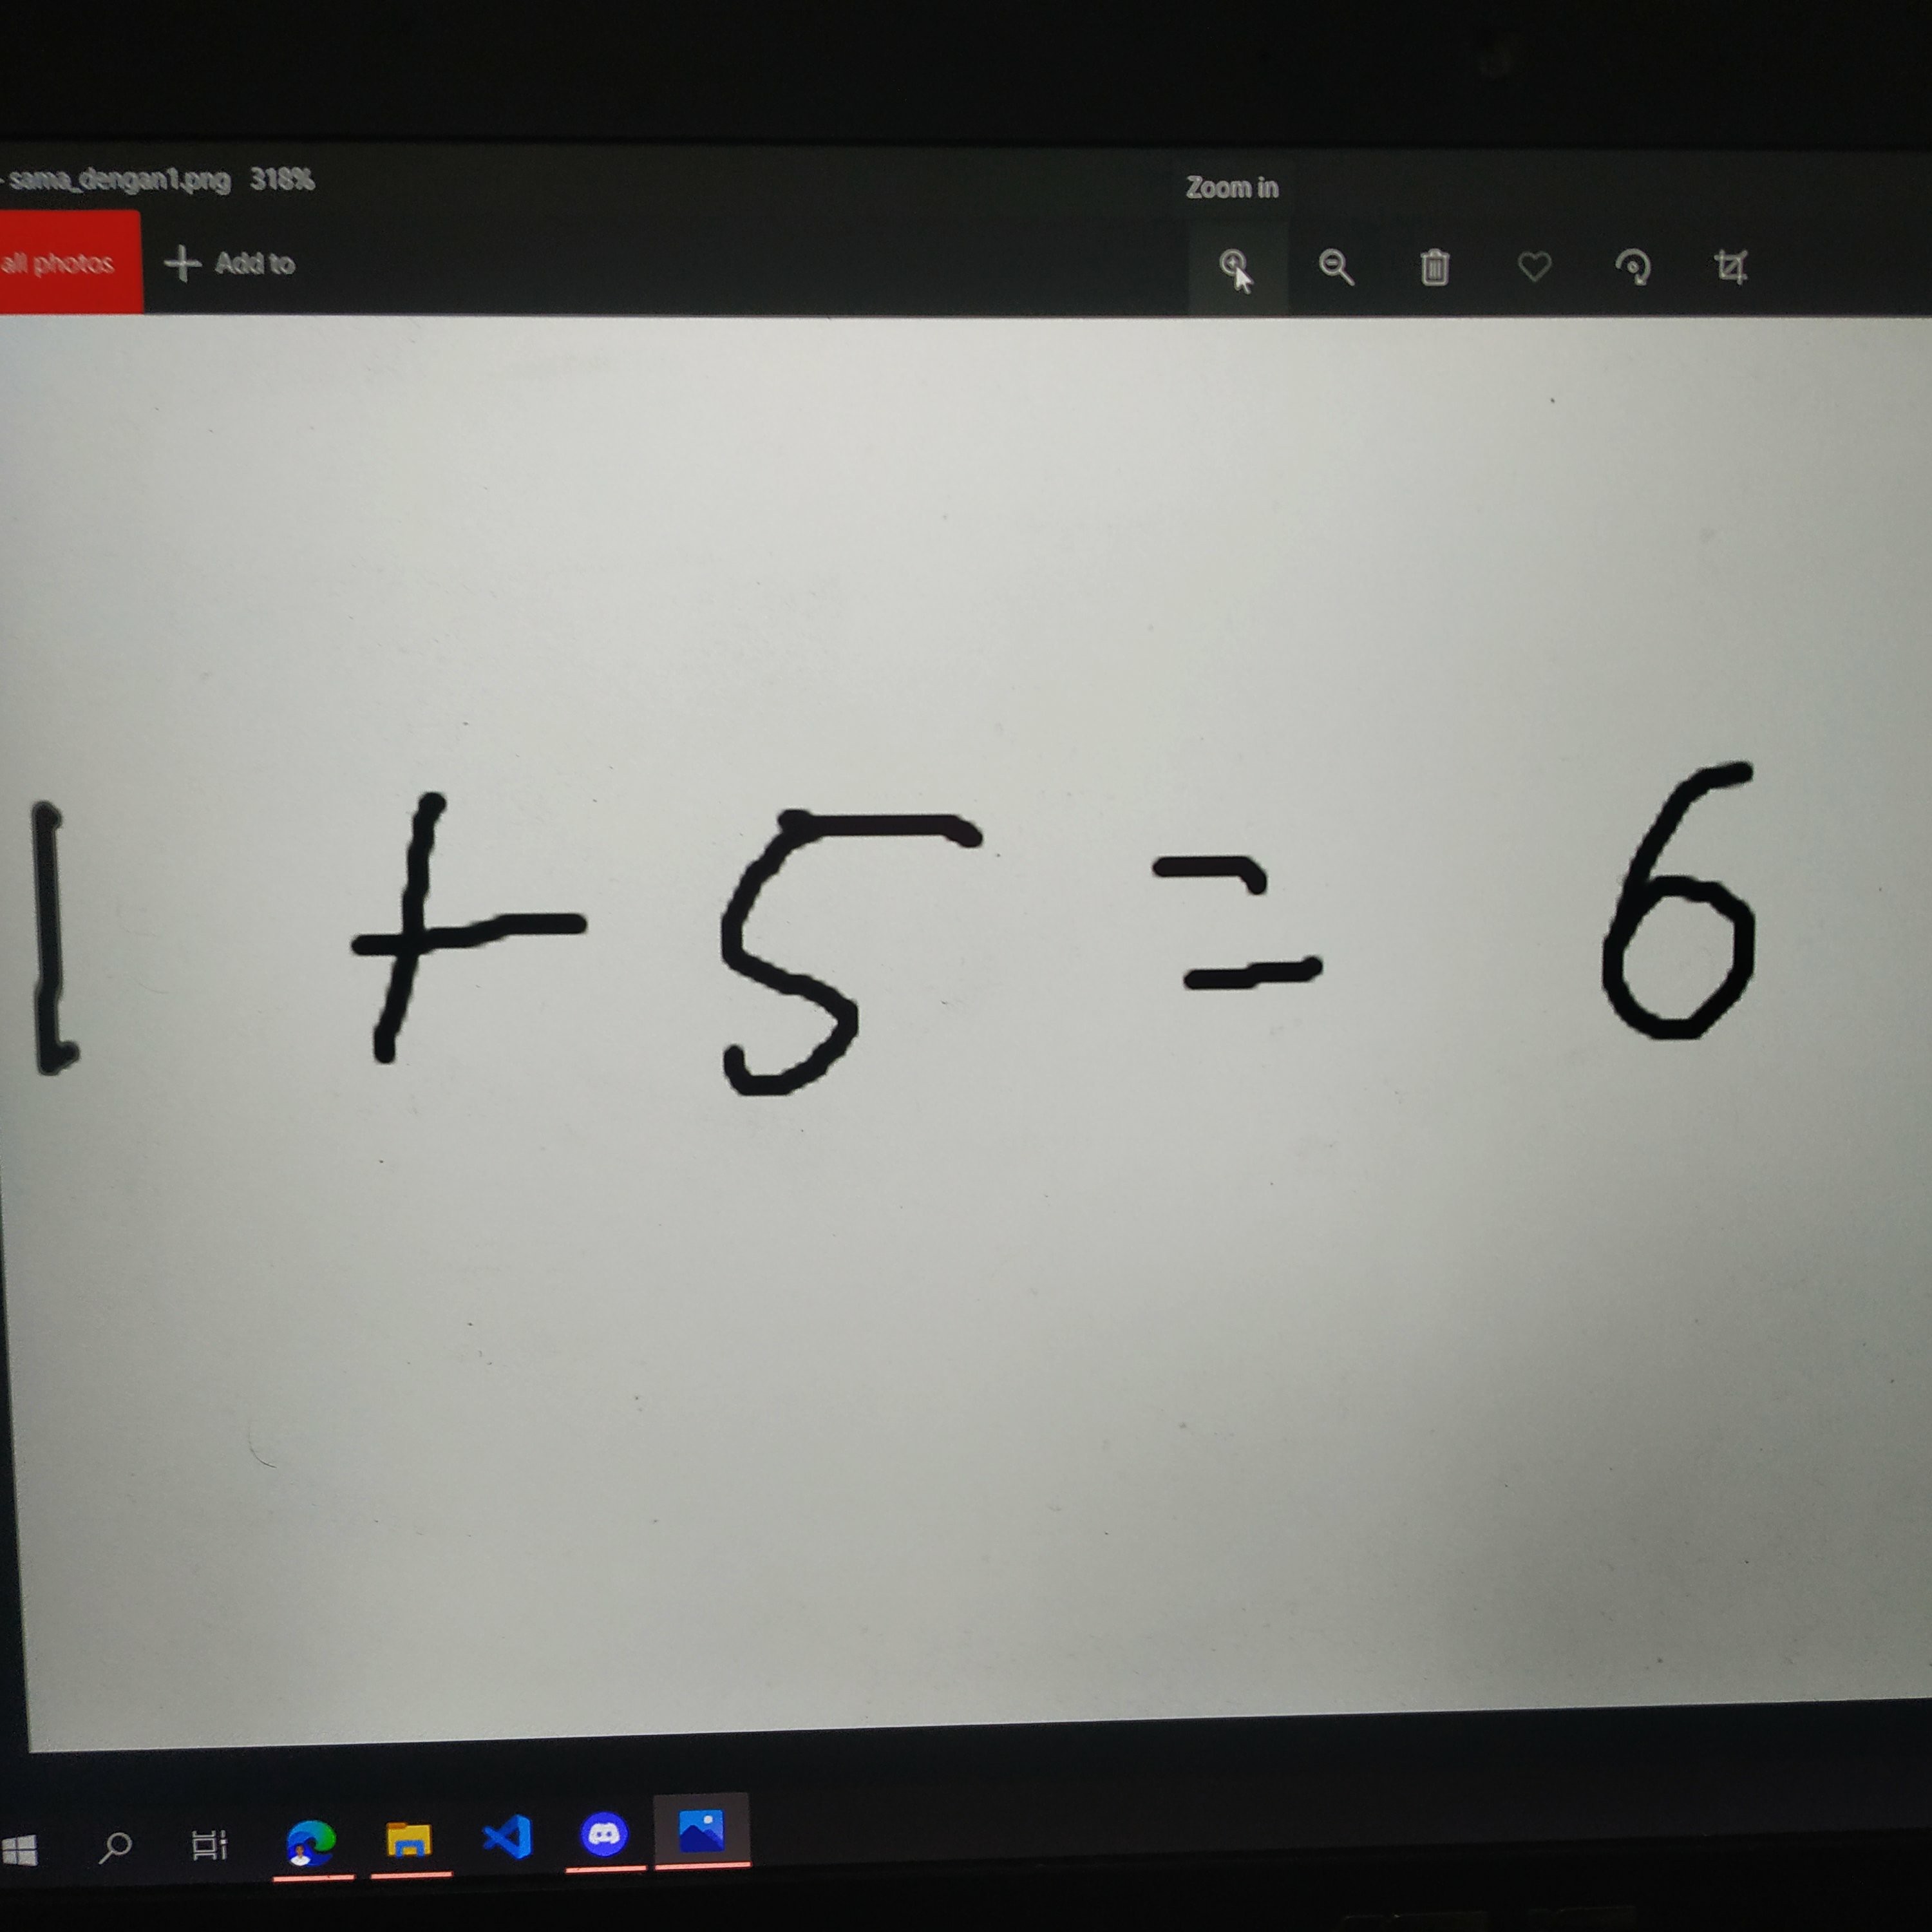 sama_dengan1.png 318%
Zoom in
all photos
Add to
1 + 5 = 6